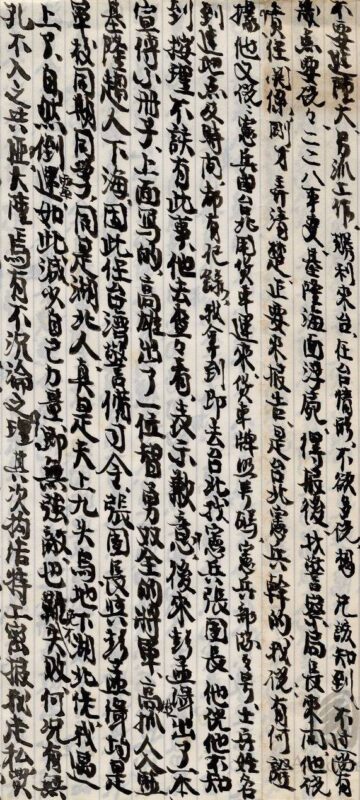 不要姓陳大男派工作, 勝利來台, 任台情形不欲多說, 想兄該知到, 不过尚有
幾点要說々, 二二八事变, 基隆海面浮屍, 得最後找警察局長來問, 他說
責任关係, 剛才弄清楚, 正要來报告, 是台北憲兵幹的, 我說有何證
據, 他又說, 憲兵由台北用货車運來, 货車牌照号碼, 憲兵部隊番号, 士兵姓名
到達地点及時间都有记錄, 我拿到即去台北找憲兵張團長, 他說他不知
到, 按理不該有此事, 他去查々看, 表示歉意, 後來彭孟緝出了一本
宣傳小冊子, 上面写的, 高雄出了一位智勇双全的將軍, 高抓人入監
基隆趕人下海, 因此任台灣警備司令, 張團長與彭孟緝均是
軍校同期同学, 同是湖北人, 真是天上九头鸟, 地下湖北佬, 我遇
上只自然倒霉, 如此減少自己力量, 即無強敵, 也难失败, 何况有無
孔不入之共匪, 大陸焉有不沉淪之理, 其次, 为活特工密报我走私買